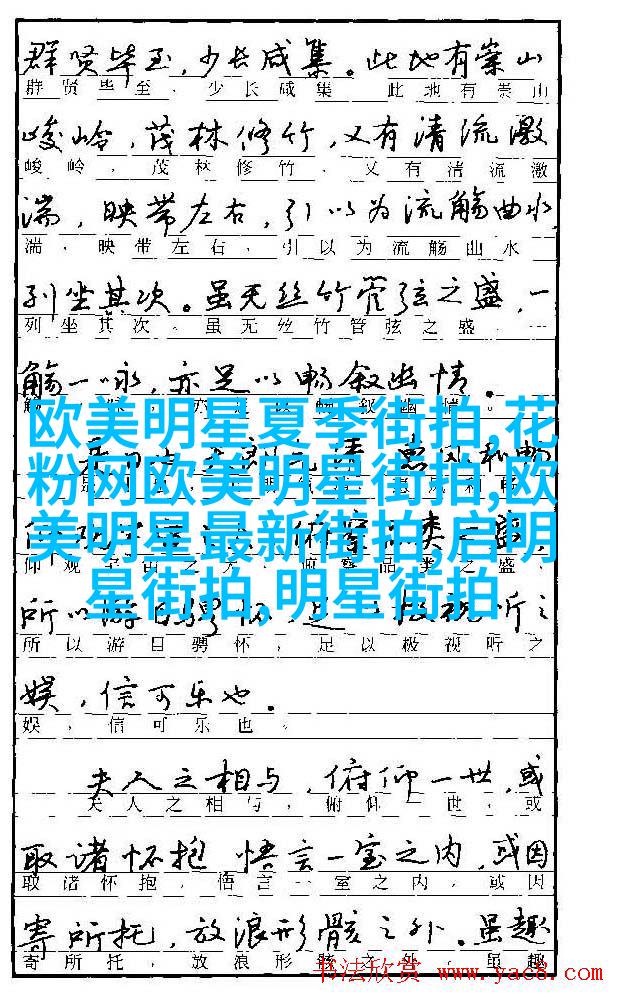 群贤毕至,少长咸集。此地有崇山
群贤毕至,少长咸集。此地有崇山
峻岭,茂林修竹,又有清流激
峻岭,茂林修竹,又有清流激
湍,映带左右,引以为流觞曲水,
湍,映带左右,引以为流觞曲水
列坐其次。虽无丝竹管弦之盛,一
列坐其次。虽无丝竹管弦之盛,一
觞一咏,亦足以畅叙幽情。
欧美明星夏季街拍,花
粉网欧美明星街拍,欧
美明星最新街拍,启明
星街拍,明星街拍
仰观宇宙之大,俯察品类之盛,
所以游目骋怀,足以极视听之
所以游目骋怀,足以极视听之
娱,信可乐也。
娱,信可乐也。
夫人之相与,俯仰一世,或
夫人之相与,俯仰一世,或
取诸怀抱 悟言一室之内,或因
取诸怀抱,悟言一室之内,或因
寄所托,放浪形骸之外。虽趣
寄所托,放浪形骸之外。虽趣
书法欣赏 www.yac8.com